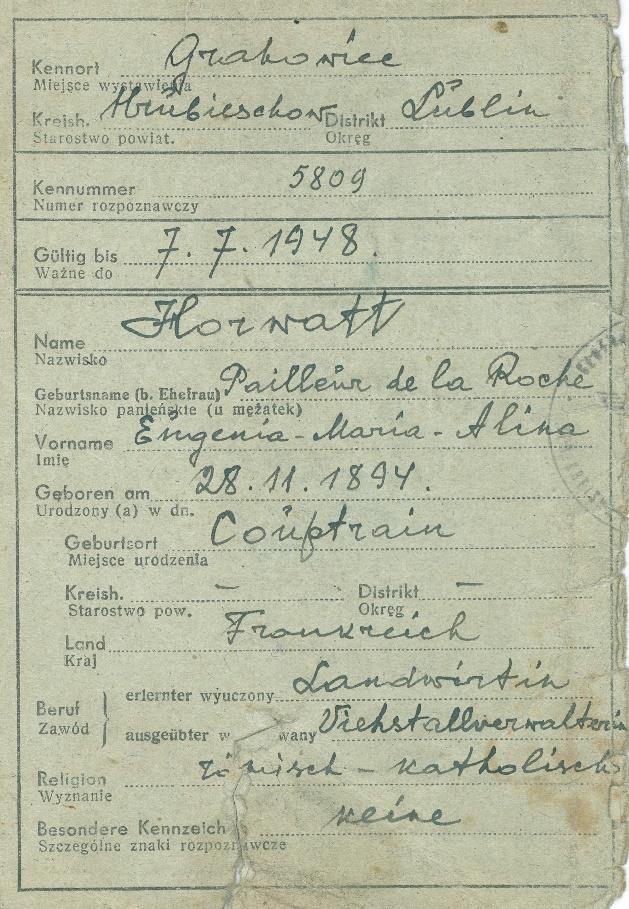 Kennort Grabowiec
Miejsce wystawienia
Kreish. Hrubieschow Distrikt Lublin
Starostwo powiat. Okręg
Kennummer 5809
Numer rozpoznawczy
Gültig bis 7. 7. 1948.
Ważne do
Name Horwatt
Nazwisko
Geburtsname (b. Ehefrau) Pailleur de la Roche
Nazwisko panieńskie (u mężatek)
Vorname Eugenia-Maria-Alina
Imię
Geboren am 28. 11. 1894.
Urodzony (a) w dn.
Geburtsort Couptrain
Miejsce urodzenia
Kreish. – Distrikt –
Starostwo pow. Okręg
Land Frankreich
Kraj
Beruf erlernter wyuczony Landwirtin
Zawód ausgeübter w wany Viehstallverwalterin
Religion römisch-katholisch
Wyznanie
Besondere Kennzeich keine
Szczególne znaki rozpoznawcze